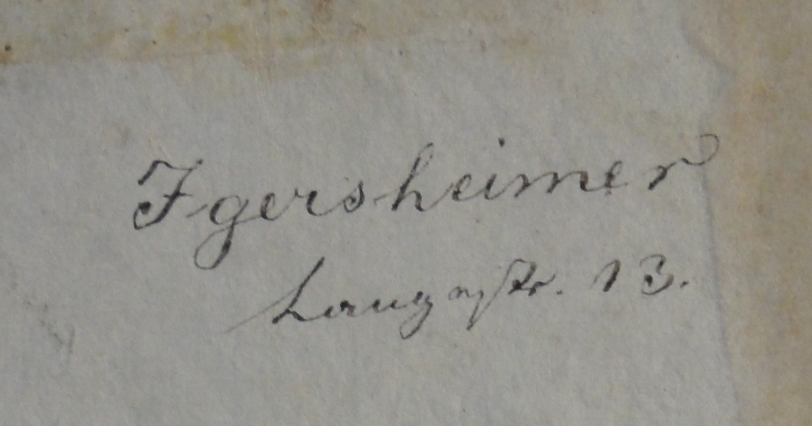 Igersheimer
Langestr. 13.